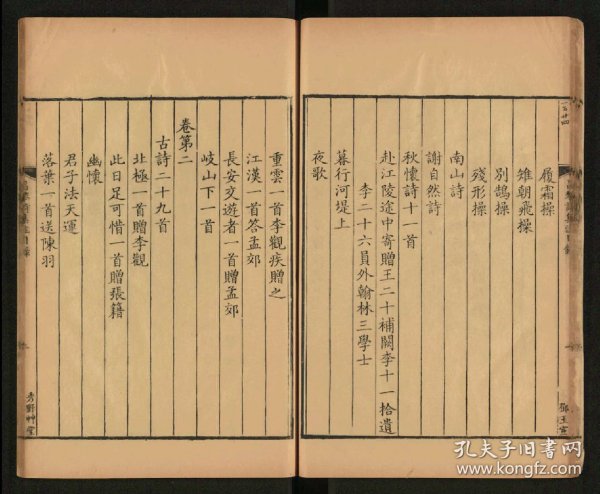 履霜操
雉朝飛操
別鵠操
殘形操
南山詩
謝自然詩
秋懷詩十一首
赴江陵途中寄贈王二十補闕李十一拾遺
李二十六員外翰林三學士
暮行河堤上
夜歌
重雲一首李觀疾贈之
江漢一首答孟郊
長安交遊者一首贈孟郊
岐山下一首
卷第二
古詩二十九首
北極一首贈李觀
此日足可惜一首贈張籍
幽懷
君子法天運
落葉一首送陳羽
秀野艸堂
孔夫子旧书网
www.kongfz.com